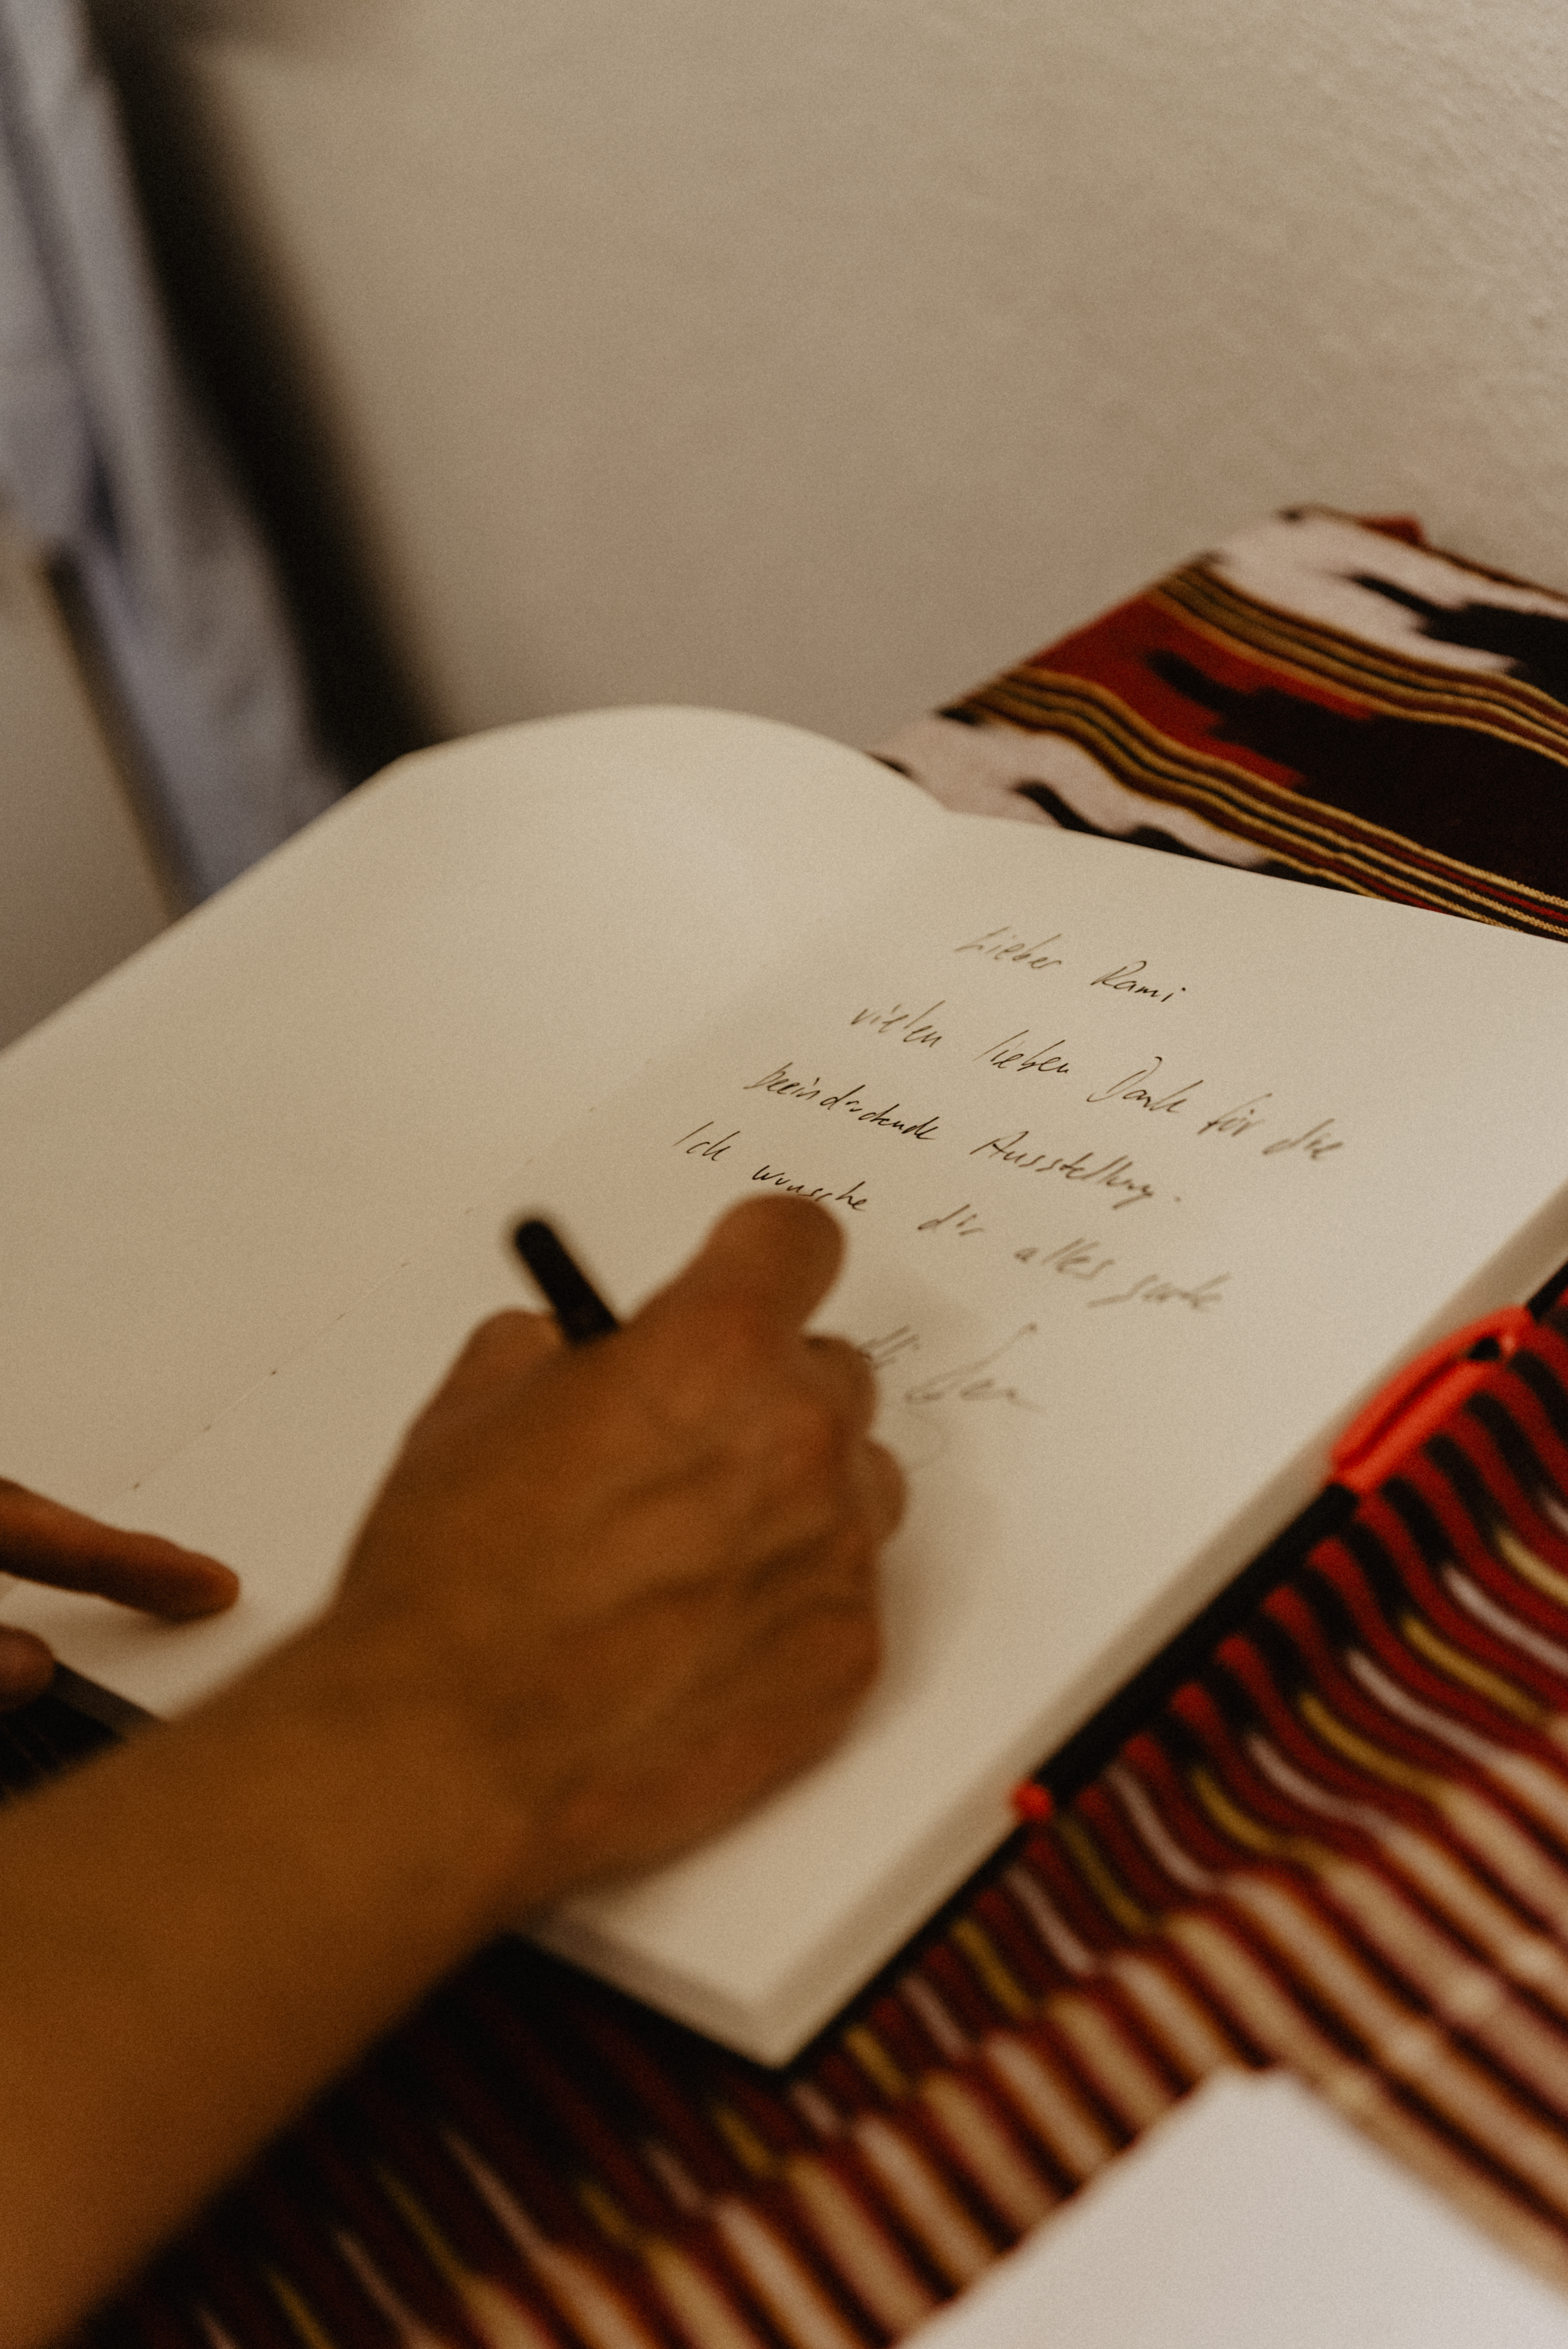 Lieber Rami
vielen lieben Dank für die
beeindruckende Ausstellung.
Ich wünsche dir alles gute